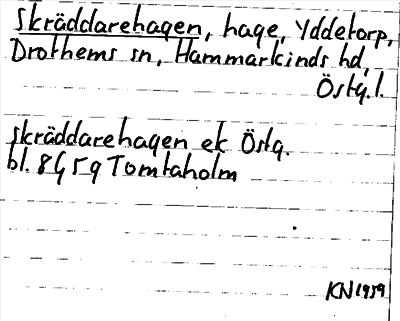 Skräddarehagen, hage, Yddetorp,
Drothems sn, Hammarkinds hd,
Östg.l.
Skräddarehagen ek Östg.
bl. 8G 5g Tomtaholm
KN 1959